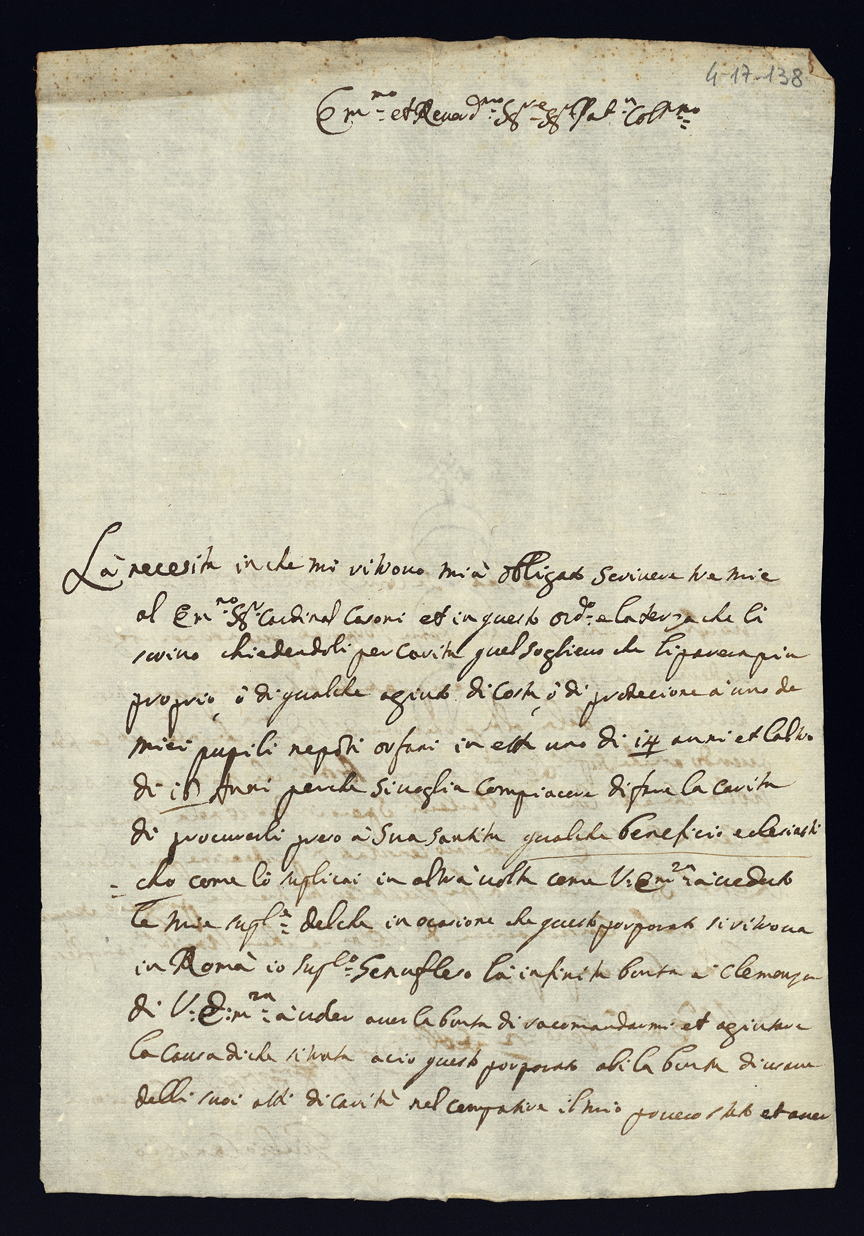 4-17-138
Em.mo et Reverd.mo Sg.re Sg.r Pat.n Coll.mo
Là necesita in che mi ritrovo mi à obligato scrivere tre mie
al Em.mo Sg.r Cardinal Casoni et in questo ord.o e la terza che li
scrivo chiedendoli per carita quel soglievo che li pareva piu
proprio, ô di qualche agiuto di costa, ô di protecione a uno de
miei pupili nepoti orfani in età uno di 14 anni et laltro
di 10 Anni perche si voglia compiacere di fare la carita
di procurarli preso à Sua Santita qualche beneficio eclesiasti
- cho come lo suplicai in altra volta come V: Em.za à veduto
le mie supl.e delche in ocasione che questo porporato si ritrova
in Roma io supl.o Genuflesso la infinita bonta e Clemenza
di V: E:m.za à voler aver la bonta di racomandarmi et agiutare
la causa di che si trata acio questo porporato abi la bonta di usare
delli suoi atti di carità nel compatire il mio povero stato et aver